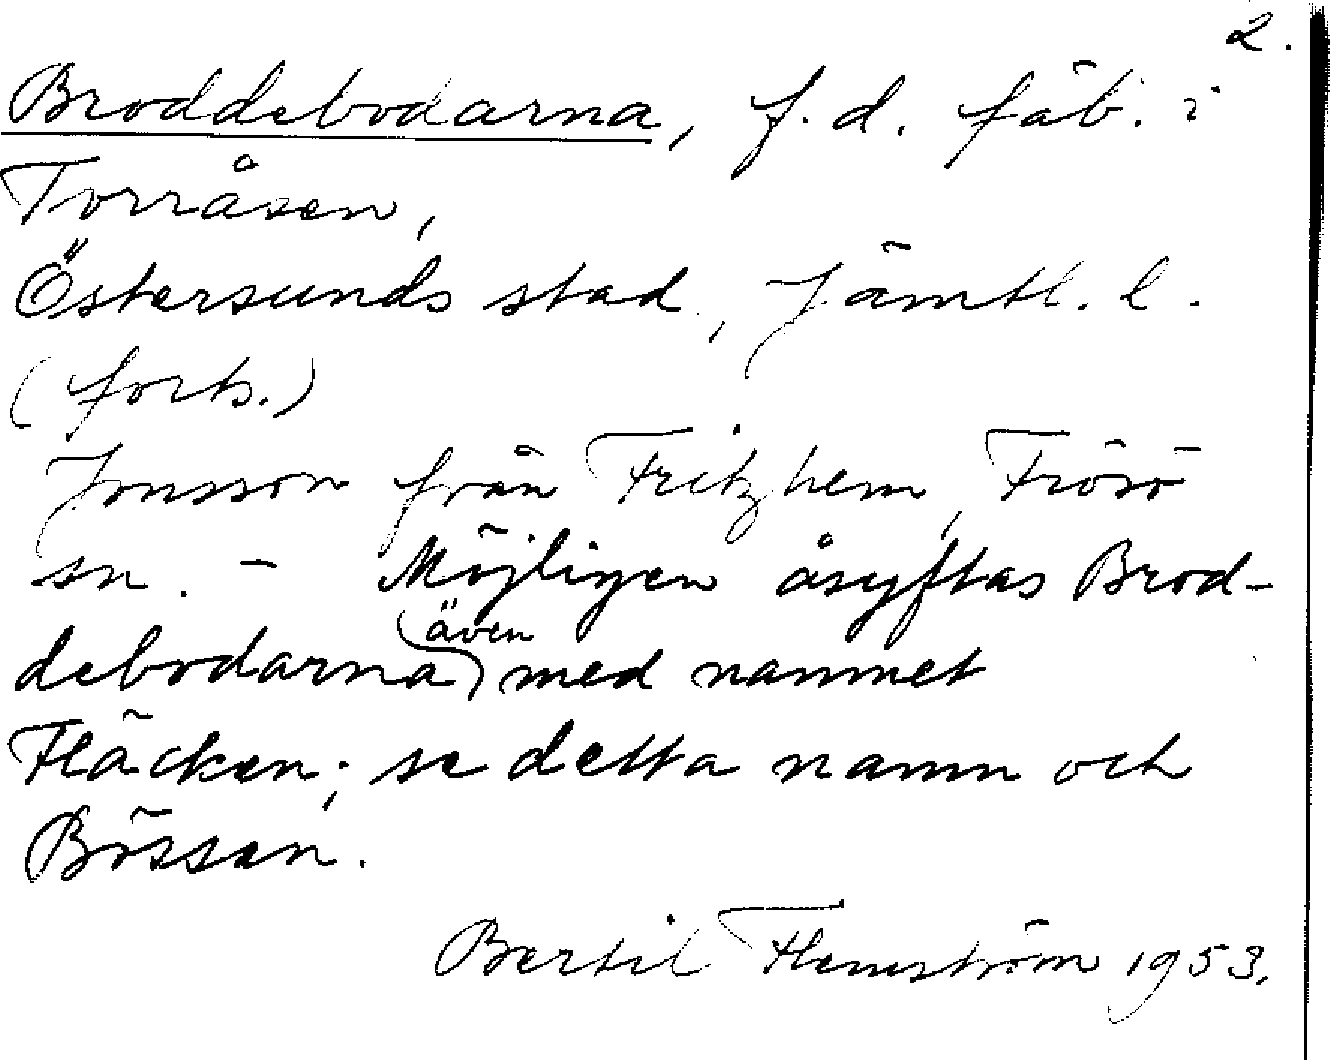 2.
Broddebodarna, f. d. fäb. i
Torråsen,
Östersunds stad, Jämtl. l.
(forts.)
Jonsson från Fritzhem, Frösö
sn. - Möjligen åsyftas Brod-
debodarna även med namnet
Fläcken; se detta namn och
Bössan.
Bertil Flemström 1953.